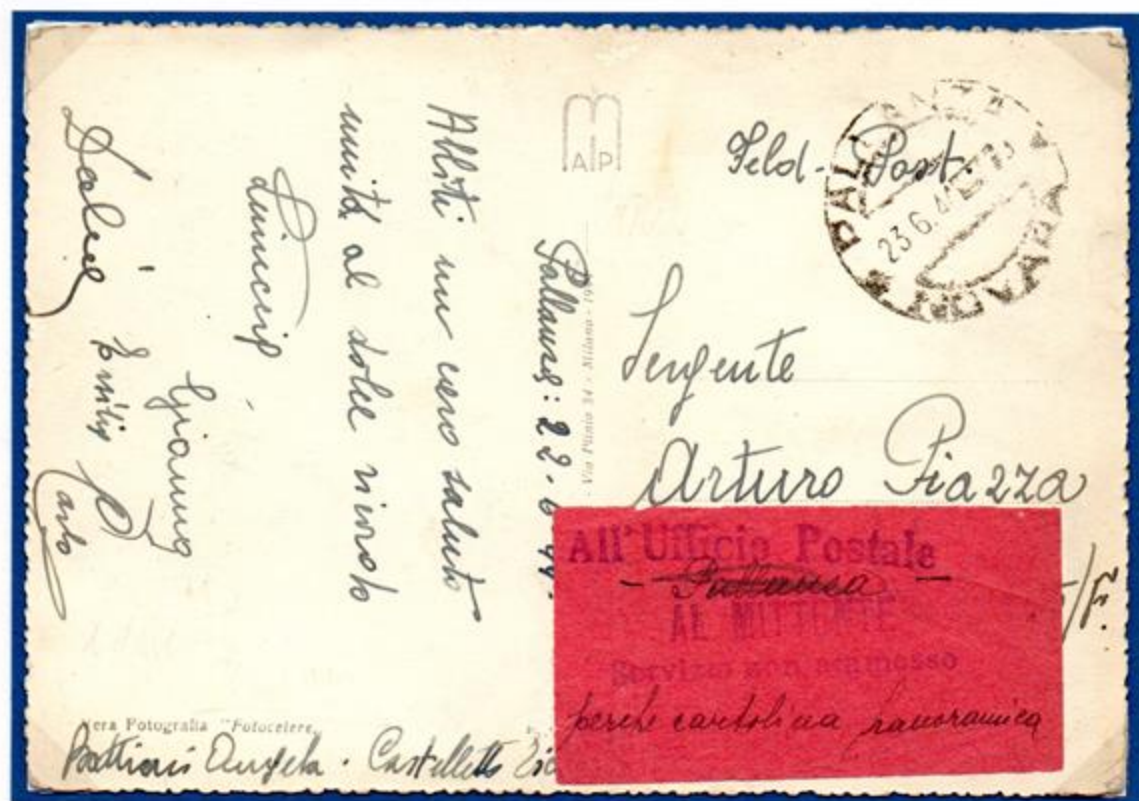 Feld-Post.
PALLANZA
NOVARA
23.6.4
MAP
Sergente
Arturo Piazza
All'Ufficio Postale
- Pallanza -
AL MITTENTE
Servizio non ammesso
perchè cartolina panoramica
Pallanza: 22-6-44.
Abbiti un caro saluto
unito al dolce ricordo
Gianna
Emilio
Carlo
Vera Fotografia "Fotocelere"
Angela - Castelletto